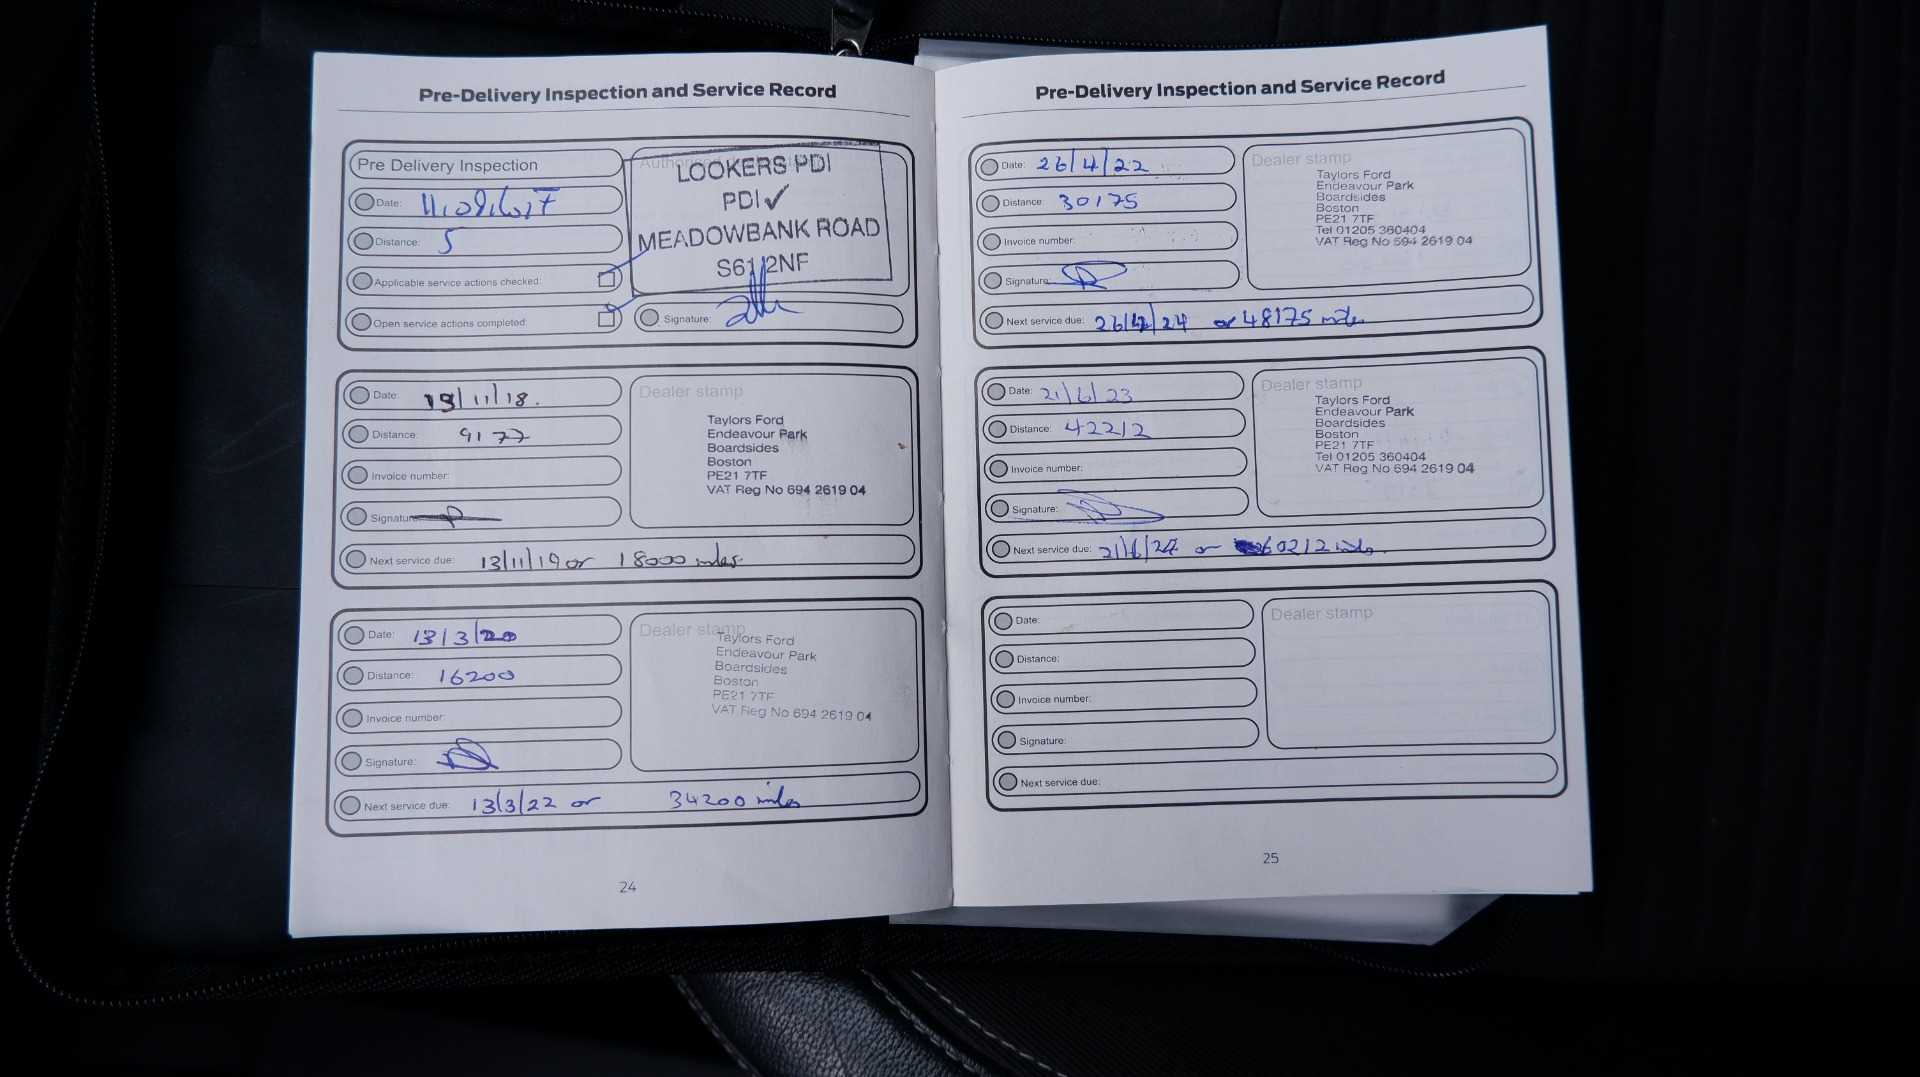 Pre-Delivery Inspection and Service Record
Pre Delivery Inspection
Date:
Distance: 5
Applicable service actions checked:
Open service actions completed:
LOOKERS PDI
PDI ✓
MEADOWBANK ROAD
S61 2NF
Signature:
Date: 13/11/18.
Distance: 9177
Invoice number:
Signature:
Next service due: 13/11/19 or 18000 miles
Dealer stamp
Taylors Ford
Endeavour Park
Boardsides
Boston
PE21 7TF
VAT Reg No 694 2619 04
Date: 13/3/20
Distance: 16200
Invoice number:
Signature:
Next service due: 13/3/22 or 34200 miles
Dealer stamp
Taylors Ford
Endeavour Park
Boardsides
Boston
PE21 7TF
VAT Reg No 694 2619 04
24
Pre-Delivery Inspection and Service Record
Date: 26/4/22
Distance: 30175
Invoice number:
Signature:
Next service due: or 48175 miles
Dealer stamp
Taylors Ford
Endeavour Park
Boardsides
Boston
PE21 7TF
Tel 01205 360404
VAT Reg No 694 2619 04
Date: 21/6/23
Distance: 42212
Invoice number:
Signature:
Next service due: or 60212 miles
Dealer stamp
Taylors Ford
Endeavour Park
Boardsides
Boston
PE21 7TF
Tel 01205 360404
VAT Reg No 694 2619 04
Date:
Distance:
Invoice number:
Signature:
Next service due:
Dealer stamp
25